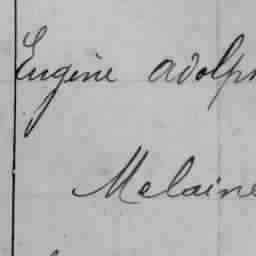 Eugène Adolph
Melaine